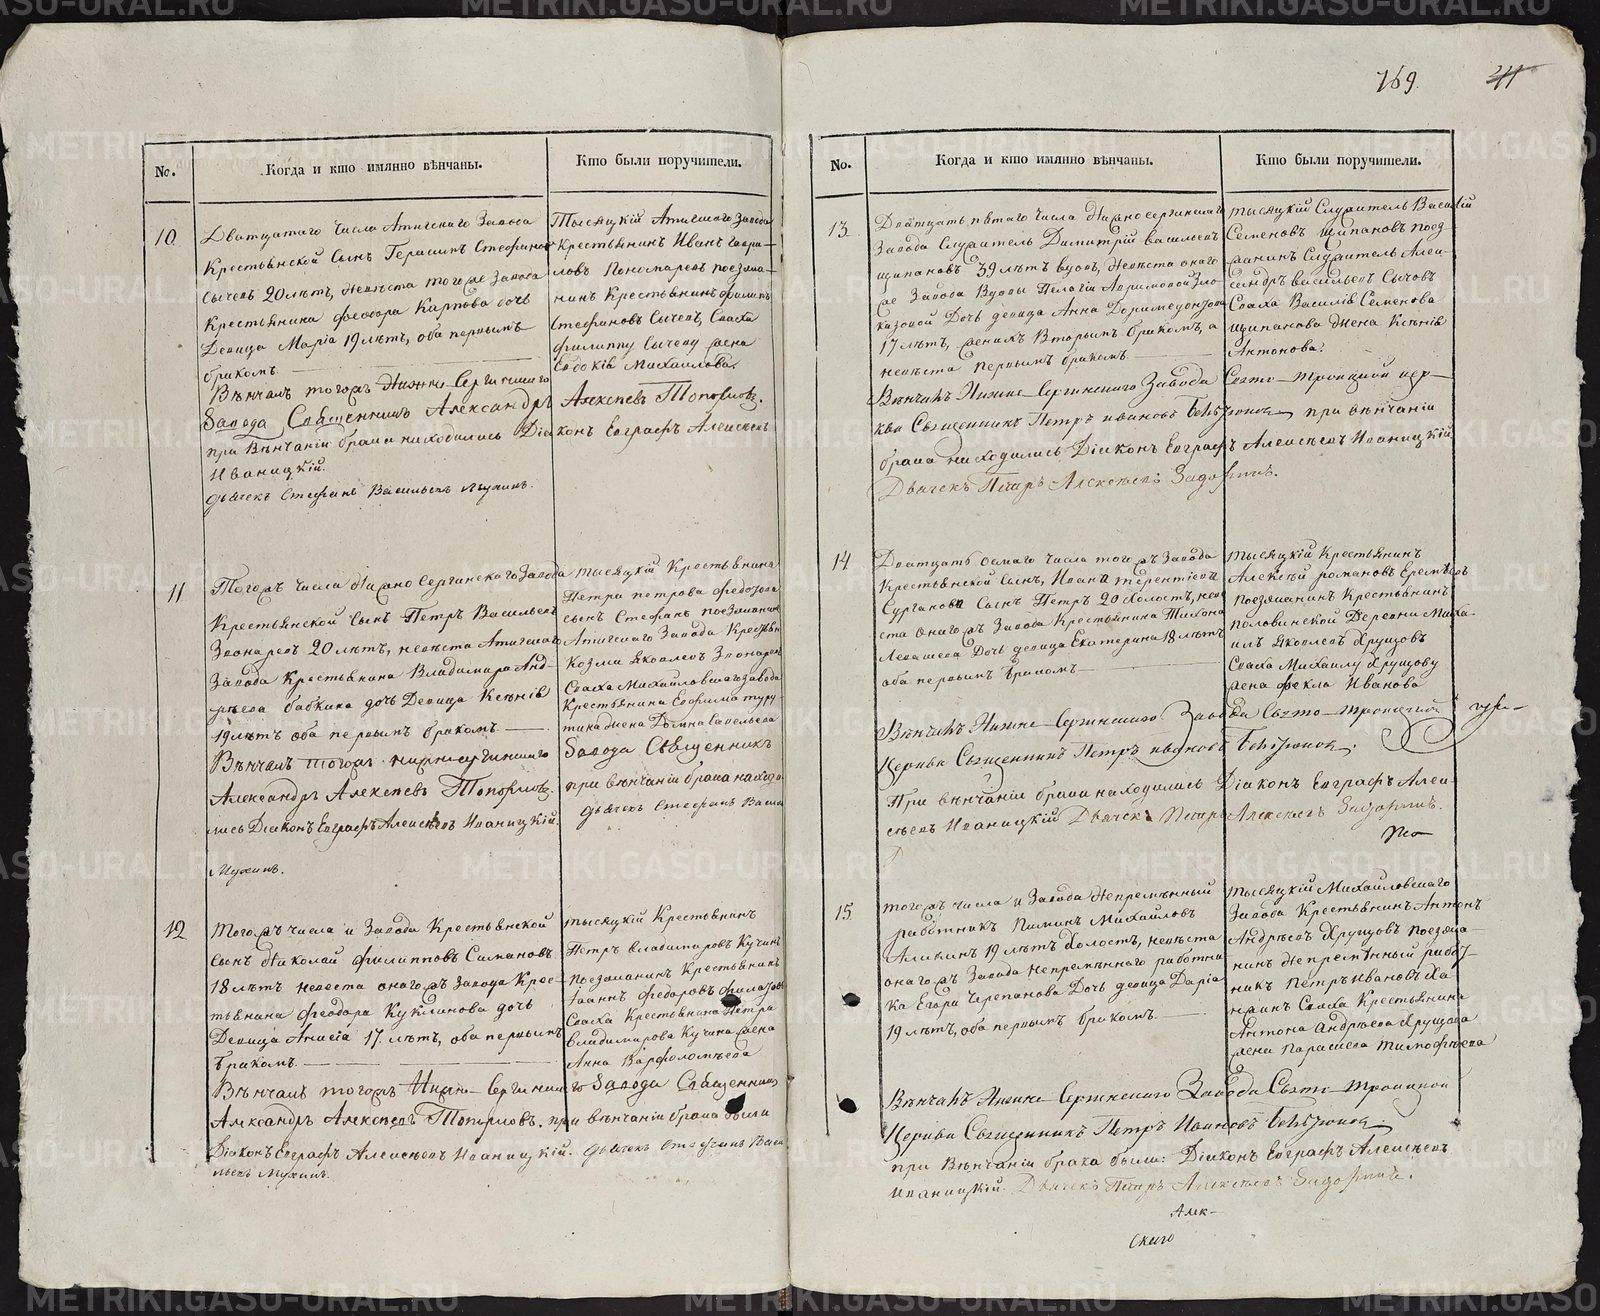 169. 211
No.
Когда и кто имянно вѣнчаны.
Кто были поручители.
10
Дватцатаго числа Атигскаго Завода
Крестьянской сынъ Герасимъ Стефановъ
Сычевъ 20 лѣтъ, невѣста тогоже Завода
Крестьянина Феодора Карпова дочь
Девица Марія 19 лѣтъ, оба первымъ
бракомъ.
Вѣнчалъ тогожъ Нижне Сергинскаго
Завода Священникъ Александръ Алексѣевъ Топорковъ.
при Вѣнчаніи брака находились Діаконъ Евграфъ Алексѣевъ
Иваницкій.
дьячекъ Стефанъ Васильевъ Мухинъ.
Тысяцкій Атигскаго Завода
Крестьянинъ Иванъ Гаври-
ловъ Пономаревъ поезжа-
нинъ Крестьянинъ Филипъ
Стефановъ Сычевъ, Сваха
Филиппу Сычеву жена
Евдокія Михайлова.
11
Тогожъ числа Нижно Сергинскаго Завода
Крестьянской сынъ Петръ Васильевъ
Звонаревъ 20 лѣтъ, невѣста Атигскаго
Завода Крестьянина Владимира Анд-
рѣева Бабкина дочь Девица Ксѣнія
19 лѣтъ оба первымъ бракомъ
Вѣнчалъ тогожъ нижнесергинскаго Завода Священникъ
Александръ Алексѣевъ Топорковъ. при вѣнчаніи брака находи-
лись Діаконъ Евграфъ Алексѣевъ Иваницкій. дьячекъ Стефанъ Васи
Мухинъ.
тысяцкій Крестьянина
Петра петрова Федозова
сынъ Стефанъ поезжанинъ
Атигскаго Завода Крестьян
Козма Яковлевъ Звонаревъ
Сваха Михайловскаго завода
Крестьянина Ефима туру
тина жена Домна Савельева
12
Тогожъ числа и Завода Крестьянской
сынъ Николай Филипповъ Симановъ
18 лѣтъ невеста онагожъ Завода Крес-
тьянина Феодора Куклинова дочь
Девица Анисія 17 лѣтъ, оба первымъ
бракомъ.
Вѣнчалъ тогожъ Нижно-Сергинскаго Завода Священникъ
Александръ Алексѣевъ Топорковъ. при вѣнчаніи брака были
Діаконъ Евграфъ Алексѣевъ Иваницкій. дьячекъ Стефанъ Васи
льевъ Мухинъ.
тысяцкій Крестьянинъ
Петръ Владимировъ Кучинъ
поезжанинъ Крестьянинъ
Іоаннъ Федоровъ
Сваха Крестьянина Петра
владимирова Кучина жена
Анна Варфоломѣева
No.
Когда и кто имянно вѣнчаны.
Кто были поручители.
13
Дватцать пятаго числа Нижносергинскаго
Завода Служитель Димитрій Васильевъ
Щипановъ 39 лѣтъ вдовъ, Невѣста онаго
же Завода Вдовы Пелагіи
Дочь девица Анна
17 лѣтъ, женихъ Вторымъ бракомъ, а
невѣста первымъ бракомъ
Вѣнчалъ Нижне-Сергинскаго Завода Свято-Троицкой цер-
кви Священникъ Петръ Ивановъ при вѣнчаніи
брака находились Діаконъ Евграфъ Алексѣевъ Иваницкій
Дьячекъ Петръ Алексѣевъ Задоринъ.
тысяцкій Служитель Василій
Семеновъ Щипановъ поез-
жанинъ Служитель Алек-
сандръ васильевъ Сычовъ
Сваха Василія Семенова
Щипанова жена Ксѣнія
Антонова.
14
Дватцать осмаго числа тогожъ Завода
Крестьянской сынъ, Ивана терентіева
Сурганова сынъ Петръ 20 холостъ, неве
ста онагожъ Завода Крестьянина Тихона
Левашева Дочь девица Екатерина 18 лѣтъ
оба первымъ бракомъ
Вѣнчалъ Нижне-Сергинскаго Завода Свято-Троицкой
Церкви Священникъ Петръ Ивановъ
При вѣнчаніи брака находились Діаконъ Евграфъ Алек-
сѣевъ Иваницкій Дьячекъ Петръ Алексѣевъ Задоринъ.
тысяцкій Крестьянинъ
Алексѣй романовъ Еремѣевъ
Поезжанинъ Крестьянинъ
половинской Деревни Миха-
илъ Яковлевъ Хрущовъ
Сваха Михаилу Хрущову
жена Фекла Иванова
15
тогожъ числа и Завода Непремѣнный
работникъ Пиминъ Михайловъ
Аликинъ 19 лѣтъ холостъ, невѣста
онагожъ Завода непремѣннаго работни
ка Егора Черепанова Дочь девица Дарія
19 лѣтъ, оба первымъ бракомъ.
Вѣнчалъ Нижне Сергинскаго Завода Свято-Троицкой
Церкви Священникъ Петръ Ивановъ
при Вѣнчаніи брака были: Діаконъ Евграфъ Алексѣевъ
Иваницкій. Дьячекъ Петръ Алексѣевъ Задоринъ.
Алек-
скаго
тысяцкій Михайловскаго
Завода Крестьянинъ Антонъ
Андрѣевъ Хрущовъ поезжа-
нинъ Непремѣнный работ-
никъ Петръ Ивановъ
Сваха Крестьянина
Антона Андрѣева Хрущова
жена Параскева Тимофѣева
METRIKI.GASO-URAL.RU